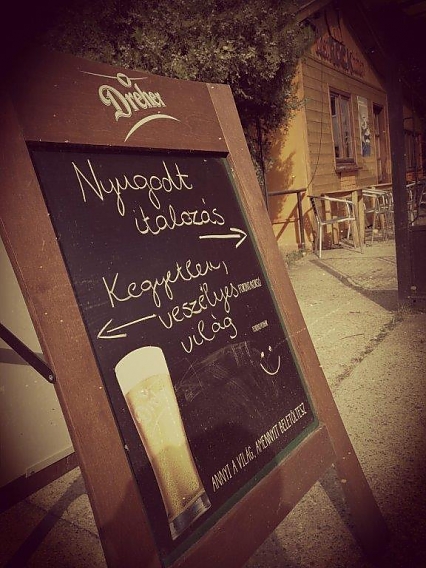 Dreher
Nyugodt
italozás
Kegyetlen,
veszélyes
világ
ANNYI A VILÁG, AMENNYIT BELETÖLTESZ